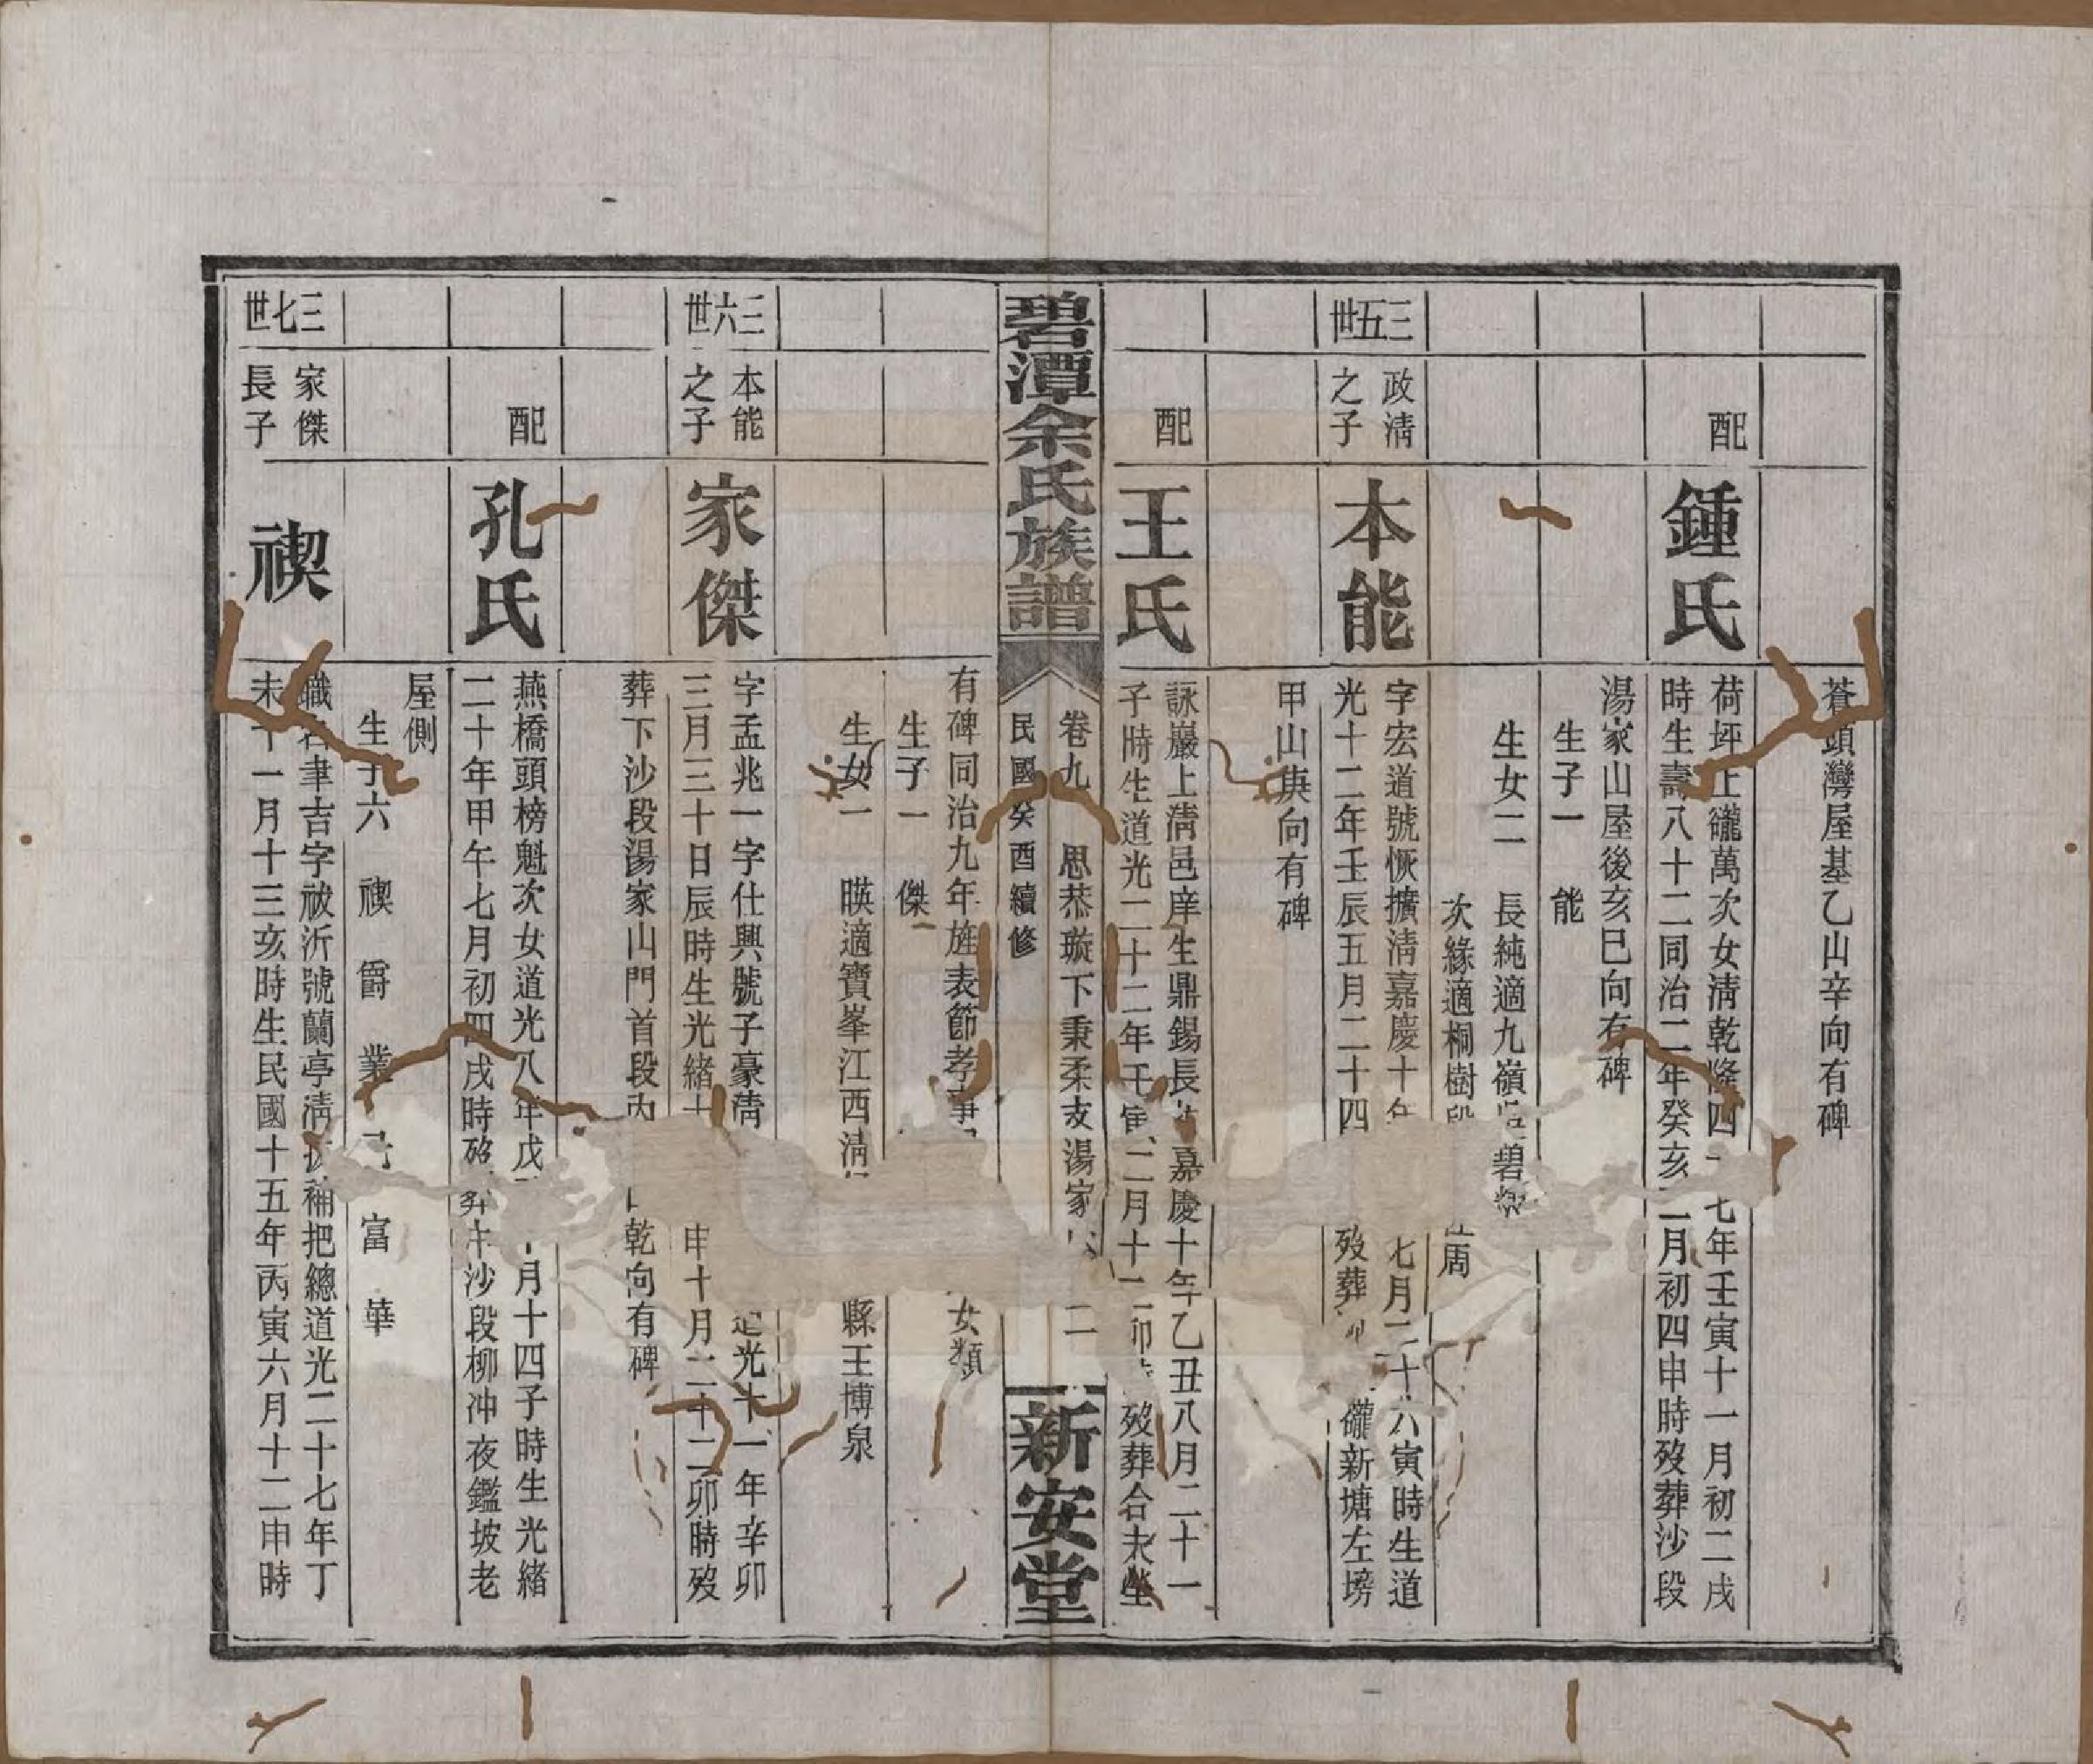 蒼頭灣屋基乙山辛向有碑
配
鍾氏
荷坪上
萬次女清乾隆四
七年壬寅十一月初二戌
時生壽八十二同治二年癸亥二月初四申時歿葬沙段
湯家山屋後亥巳向有碑
生子一 能
生女二 長純適九嶺
碧
次緣適桐樹
周
三五世
政清之子
本能
字宏道號恢擴清嘉慶十年
七月二十六寅時生道
光十二年壬辰五月二十四
歿葬
新塘左塝
甲山庚向有碑
配
王氏
詠巖上清邑庠生鼎錫長女嘉慶十年乙丑八月二十一
子時生道光二十二年壬寅二月十二卯
歿葬合夫塋
碧潭余氏族譜
卷九 思恭璇下秉柔支湯家
二
民國癸酉續修
新安堂
有碑同治九年旌表節孝
女類
生子一 傑
生女一 暎適寶峯江西清
縣王博泉
三六世
本能之子
家傑
字孟兆一字仕興號子豪清
道光十一年辛卯
三月三十日辰時生光緒
申十月二十二卯時歿
葬下沙段湯家山門首段
乾向有碑
配
孔氏
燕橋頭榜魁次女道光八年戊
月十四子時生光緒
二十年甲午七月初四戌時歿葬下沙段柳冲夜鑑坡老
屋側
生子六 禊 爵 業
富 華
三七世
家傑長子
禊
職名聿吉字祓沂號蘭亭清
補把總道光二十七年丁
未十一月十三亥時生民國十五年丙寅六月十二申時